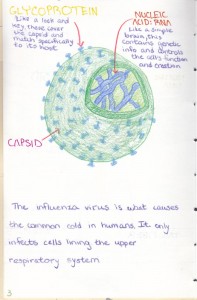 GLYCOPROTEIN
Like a lock and
key, these cover
the capsid and
match specifically
to its host
NUCLEIC
ACID: RNA
Like a simple
brain, this
contains genetic
info and controls
the cell's function
and creation
CAPSID
The influenza virus is what causes
the common cold in humans. It only
infects cells lining the upper
respiratory system
3